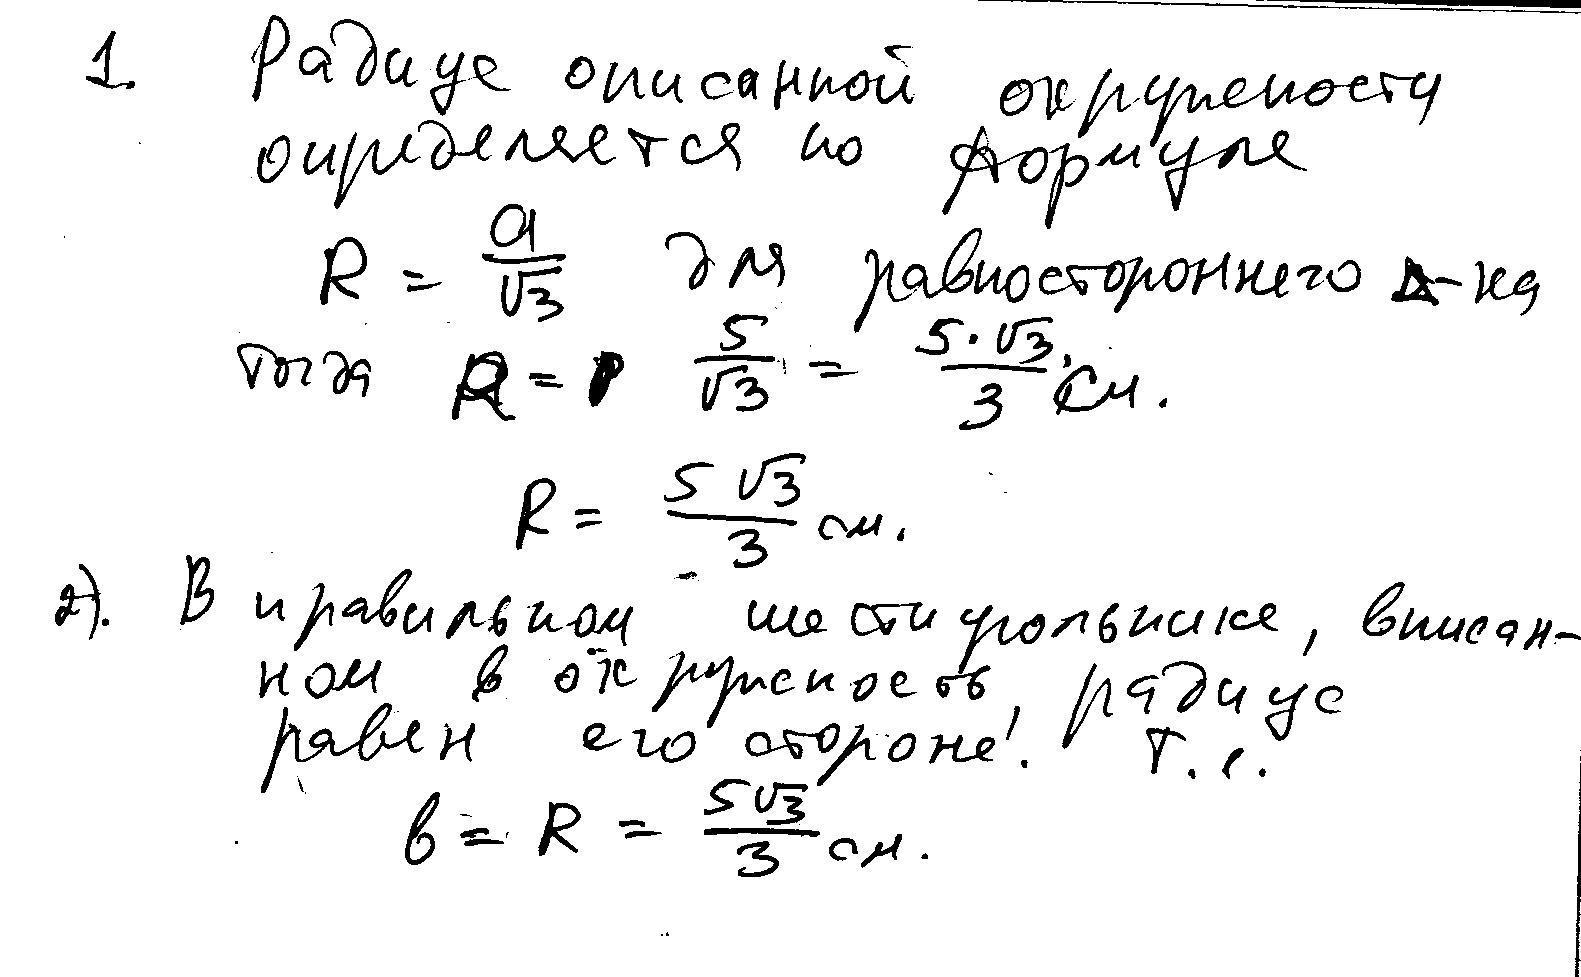 1. Радиус описанной окружности
определяется по формуле
R = a/√3 для равностороннего Δ-ка
тогда R = 5/√3 = 5·√3/3 см.
R = 5√3/3 см.
2). В правильном шестиугольнике, вписан-
ном в окружность, радиус
равен его стороне! т.е.
в = R = 5√3/3 см.